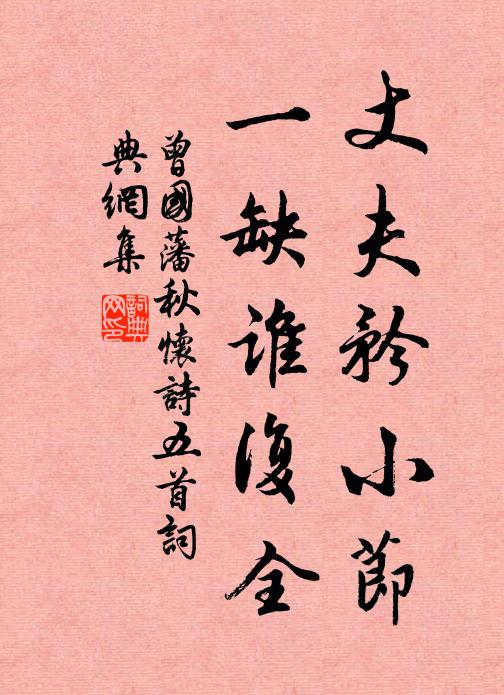 丈夫矜小節
一缺誰復全
曾國藩秋懷詩五首詞
典網集
詞典
网印